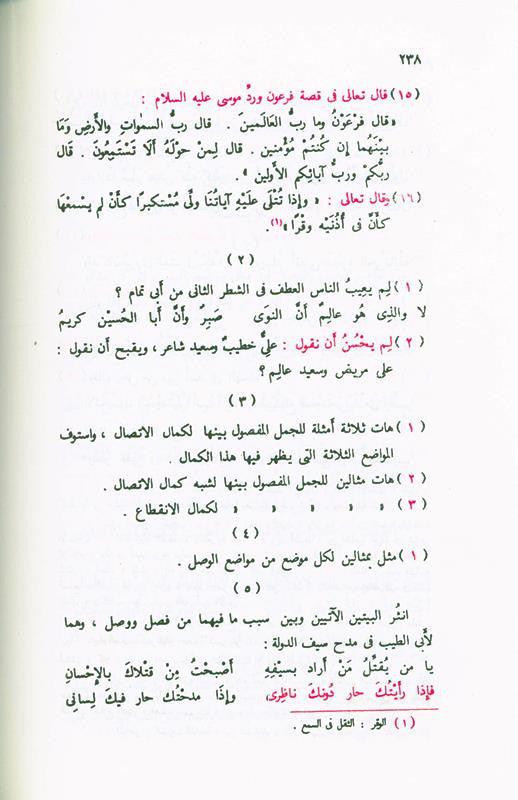 ٢٣٨
(١٥) قال تعالى فى قصة فرعون وردِّ موسى عليه السلام :
« قال فرْعَوْنُ وما ربُّ العَالَمينَ . قال ربُّ السمٰواتِ والأَرضِ وَمَا
بيْنَهُما إن كُنتُمْ مُوْمنين . قال لِمنْ حوْلَهُ أَلَا تَسْتَمِعُونَ . قال
ربُّكمْ وربُّ آبائِكم الأَولين » .
(١٦) وقال تعالى : « وإذا تُتْلَى علَيْهِ آياتُنَا ولَّى مُسْتكبرًا كأَنْ لم يسْمعْهَا
كأَنَّ فى أُذُنَيْه وقْرًا »(١).
( ٢ )
( ١ ) لِم يعِيبُ الناس العطف فى الشطر الثانى من أبى تمام ؟
لا والذِى هُو عالِمٌ أَنَّ النوَى صَبِرٌ وأَنَّ أَبا الحُسيْن كريمُ
( ٢ ) لِم يحْسُنُ أَن نقول : علىٌّ خطيبٌ وسعيد شاعر ، ويقبح أن نقول :
على مريض وسعيد عالِم ؟
( ٣ )
( ١ ) هات ثلاثة أمثلة للجمل المفصول بينها لكمال الاتصال ، واستوف
المواضع الثلاثة التى يظهر فيها هذا الكمال .
( ٢ ) هات مثالين للجمل المفصول بينها لشبه كمال الاتصال .
( ٣ ) « « « « « لكمال الانقطاع .
( ٤ )
( ١ ) مثل بمثالين لكل موضع من مواضع الوصل .
( ٥ )
انثُر البيتين الآتيين وبين سبب ما فيهما من فصل ووصل ، وهما
لأَبى الطيب فى مدح سيف الدولة :
يا من يُقتِّلُ مَنْ أَراد بسيْفِهِ أَصبحْتُ مِنْ قتْلاكَ بالإِحْسانِ
فإِذا رأَيْتُكَ حار دُونكَ ناظِرِى، وإذَا مدحْتُك حار فيكَ لِسانِى
( ١ ) الوقر : الثقل فى السمع .